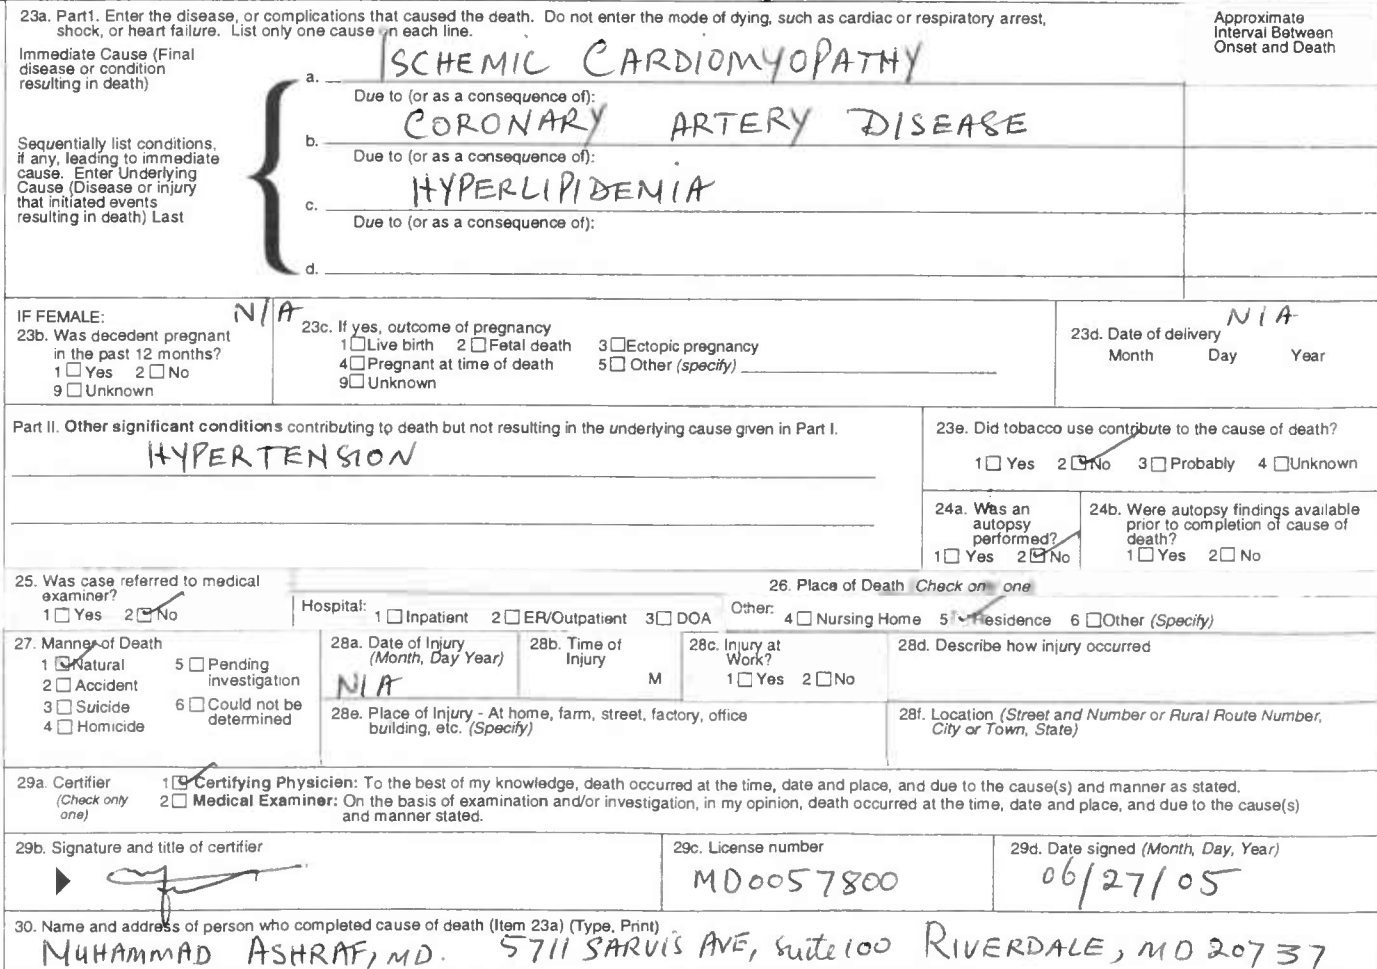 23a. Part1. Enter the disease, or complications that caused the death. Do not enter the mode of dying, such as cardiac or respiratory arrest,
shock, or heart failure. List only one cause on each line.
Approximate
Interval Between
Onset and Death
Immediate Cause (Final
disease or condition
resulting in death)
a. ISCHEMIC CARDIOMYOPATHY
Due to (or as a consequence of):
b. CORONARY ARTERY DISEASE
Sequentially list conditions,
if any, leading to immediate
cause. Enter Underlying
Cause (Disease or injury
that initiated events
resulting in death) Last
Due to (or as a consequence of):
c. HYPERLIPIDEMIA
Due to (or as a consequence of):
d.
IF FEMALE: N/A
23b. Was decedent pregnant
in the past 12 months?
1 ☐ Yes 2 ☐ No
9 ☐ Unknown
23c. If yes, outcome of pregnancy
1 ☐ Live birth 2 ☐ Fetal death 3 ☐ Ectopic pregnancy
4 ☐ Pregnant at time of death 5 ☐ Other (specify)
9 ☐ Unknown
N/A
23d. Date of delivery
Month Day Year
Part II. Other significant conditions contributing to death but not resulting in the underlying cause given in Part I.
HYPERTENSION
23e. Did tobacco use contribute to the cause of death?
1 ☐ Yes 2 ☑ No 3 ☐ Probably 4 ☐ Unknown
24a. Was an
autopsy
performed?
1 ☐ Yes 2 ☑ No
24b. Were autopsy findings available
prior to completion of cause of
death?
1 ☐ Yes 2 ☐ No
25. Was case referred to medical
examiner?
1 ☐ Yes 2 ☑ No
26. Place of Death Check only one
Hospital: 1 ☐ Inpatient 2 ☐ ER/Outpatient 3 ☐ DOA Other: 4 ☐ Nursing Home 5 ☑ Residence 6 ☐ Other (Specify)
27. Manner of Death
1 ☑ Natural 5 ☐ Pending
investigation
2 ☐ Accident
3 ☐ Suicide 6 ☐ Could not be
determined
4 ☐ Homicide
28a. Date of Injury
(Month, Day Year)
N/A
28b. Time of
Injury
M
28c. Injury at
Work?
1 ☐ Yes 2 ☐ No
28d. Describe how injury occurred
28e. Place of Injury - At home, farm, street, factory, office
building, etc. (Specify)
28f. Location (Street and Number or Rural Route Number,
City or Town, State)
29a. Certifier
(Check only
one)
1 ☑ Certifying Physicien: To the best of my knowledge, death occurred at the time, date and place, and due to the cause(s) and manner as stated.
2 ☐ Medical Examiner: On the basis of examination and/or investigation, in my opinion, death occurred at the time, date and place, and due to the cause(s)
and manner stated.
29b. Signature and title of certifier
29c. License number
MD0057800
29d. Date signed (Month, Day, Year)
06/27/05
30. Name and address of person who completed cause of death (Item 23a) (Type, Print)
MUHAMMAD ASHRAF, MD. 5711 SARVIS AVE, Suite 100 RIVERDALE, MD 20737